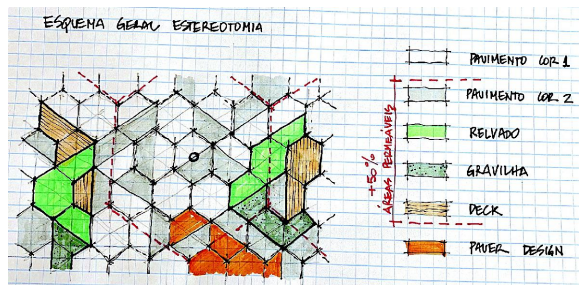 ESQUEMA GERAL ESTEREOTOMIA
PAVIMENTO COR 1
PAVIMENTO COR 2
RELVADO
GRAVILHA
DECK
PAVER DESIGN
+50%
ÁREAS PERMEÁVEIS